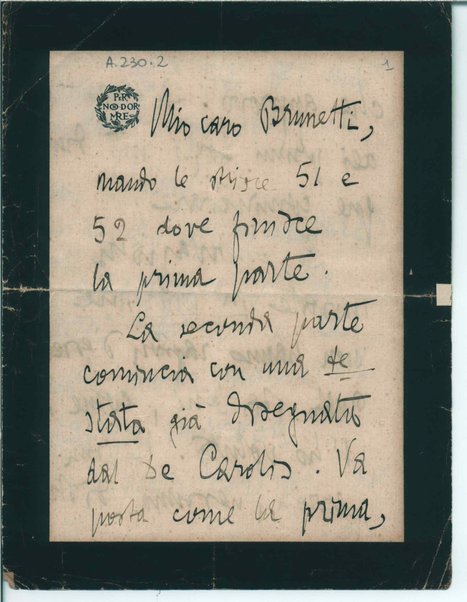 A.230.2
1
PER
NON DOR
MIRE
Mio caro Brunetti,
mando le strisce 51 e
52 dove finisce
la prima parte.
La seconda parte
comincia con una te
stata già disegnata
dal De Carolis. Va
posta come la prima,